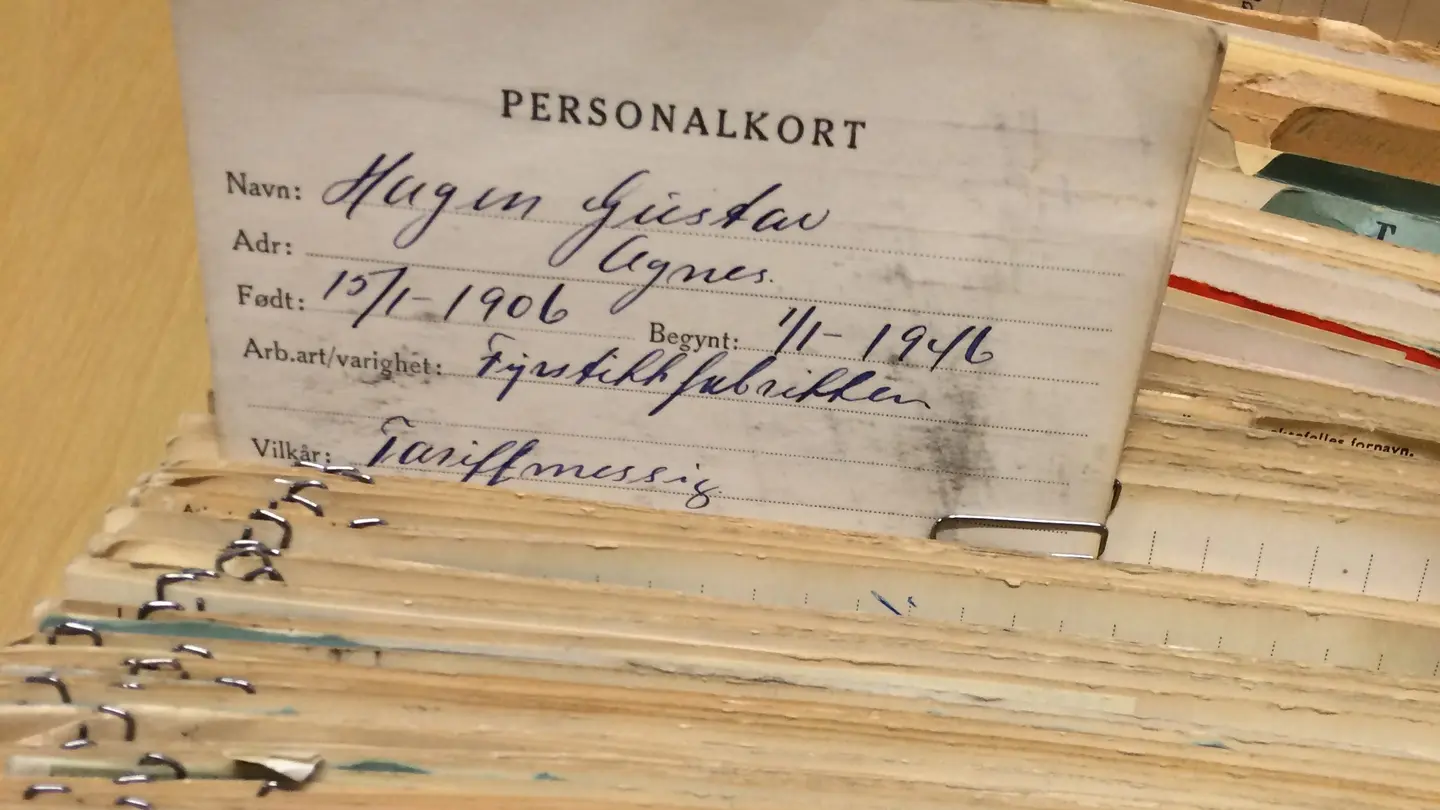 PERSONALKORT
Navn: Hagen Gustav
Adr: Agnes.
Født: 15/1-1906 Begynt: 1/1-1946
Arb.art/varighet: Fyrstikkfabrikken
Vilkår: Tariffmessig.
T
fornavn.